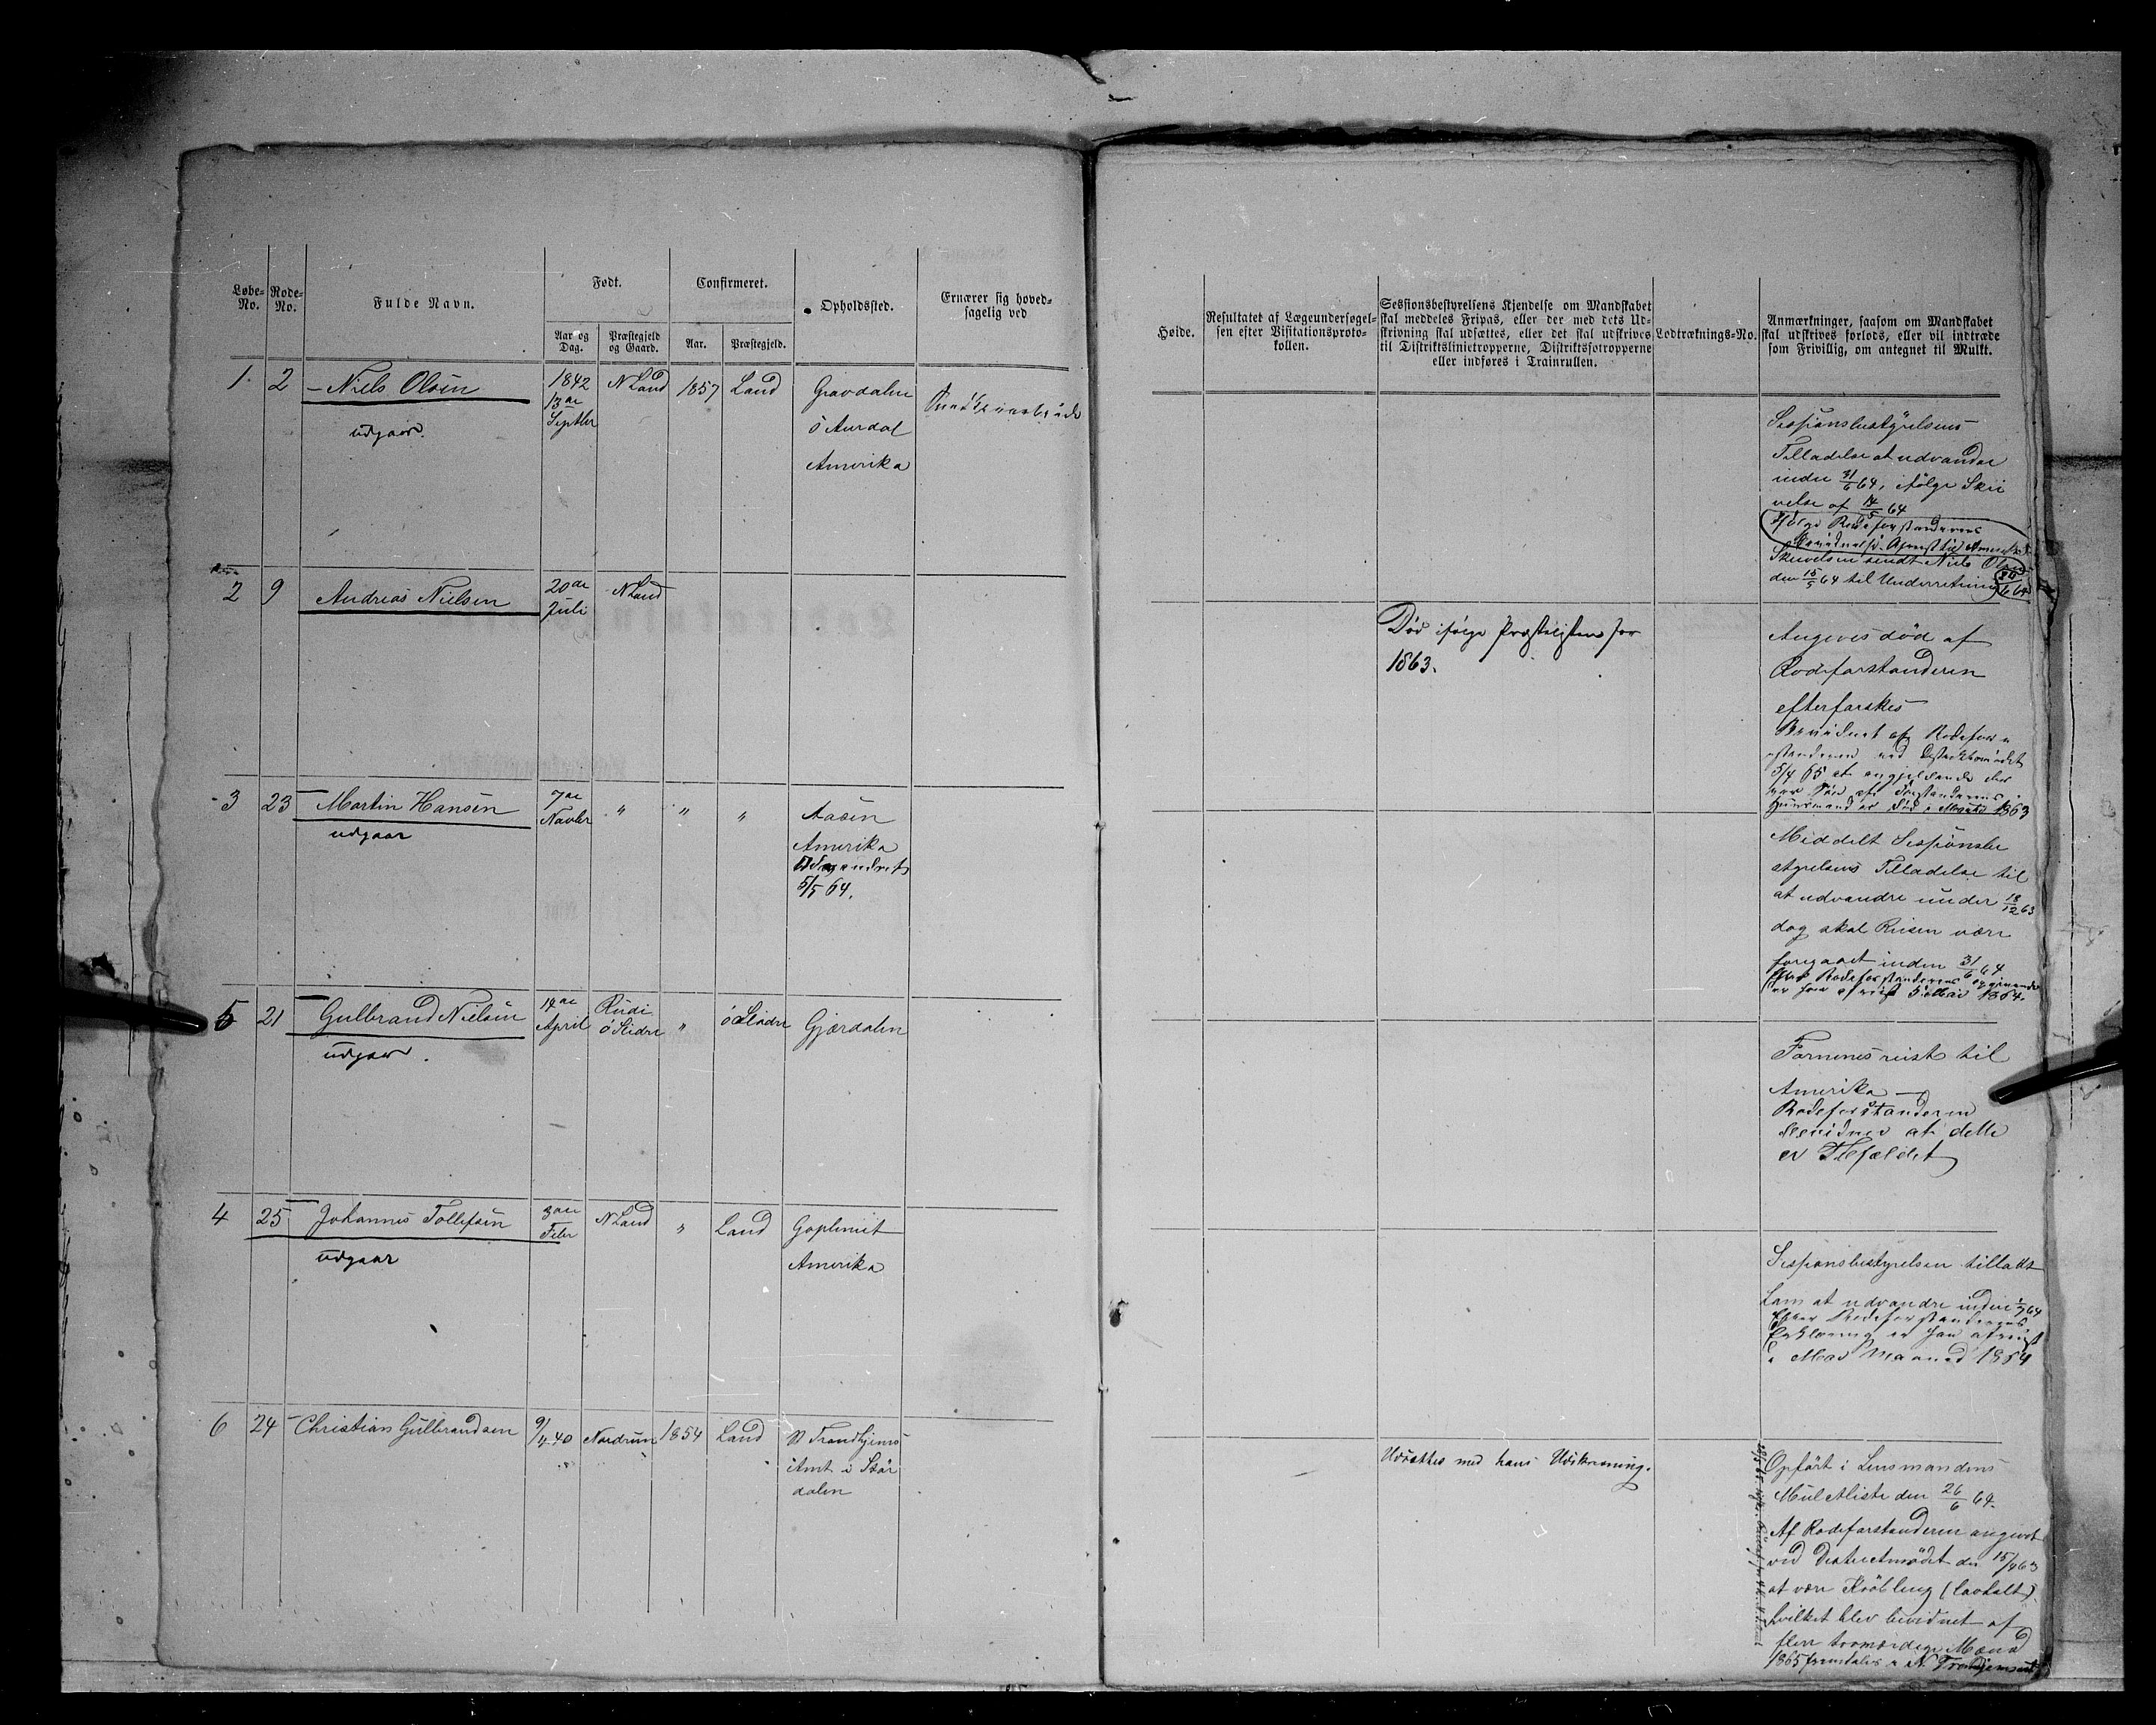 Løbe-No.
Rode-No.
Fulde Navn.
Født.
Aar og Dag.
Præstegjeld og Gaard.
Confirmeret.
Aar.
Præstegjeld.
Opholdssted.
Ernærer sig hoved-
sagelig ved
Høide.
Resultatet af Lægeundersøgel-
sen efter Visitationsproto-
kollen.
Sessionsbestyrelsens Kjendelse om Mandskabet
skal meddeles Fripas, eller der med dets Ud-
skrivning skal udsættes, eller det skal udskrives
til Distriktslinietropperne, Distriktsfotropperne
eller indføres i Trainrullen.
Lodtræknings-No.
Anmærkninger, saasom om Mandskabet
skal udskrives forlods, eller vil indtræde
som Frivillig, om antegnet til Mulkt.
1. 2 – Niels Olsen 1842 N Land 1857 Land Gravdalen
13de
Septbr
udgaar.
ö Aurdal
Amerika
Sessionsbestyrelsens
Tilladelse at udvandre
inden 31/6 64, ifølge Skri
velse af 14/5 64
ifølge Rodeforstanderens
Skrivelsen sendt Niels Olsen
den 15/5 64 til Underretning
2 9 Andreas Nielsen 20de N Land
Juli
Død ifølge Præstelisten for
1863.
Angives død af
Rodeforstanderen
efterforskes
Bevidnet af Rodefor
standeren ved Distriktsmødet
5/4 65 at angjeldende
3 23 Martin Hansen 7de " " " Aasen
Novbr
udgaar
Amerika
Udvandret
5/5 64.
Meddelt Sessionsbe
styrelsens Tilladelse til
at udvandre under 18/12 63
dog skal Reisen være
foregaaet inden 31/6 64
5 21 Gulbrand Nielsen 14de Rudi " ö Slidre Gjærdalen
April ö Slidre
udgaar.
Formenes reist til
Amerika –
Rodeforstanderen
bevidner at dette
er Tilfældet
4 25 Johannes Tollefsen 3die N Land " Land Goplerud
Febr
udgaar
Amerika
Sessionsbestyrelsen tilladt
ham at udvandre inden 1/7 64
Efter Rodeforstanderens
Erklæring er han afreist
i Mai Maaned 1864
6 24 – Christian Gulbrandsen 9/4 40 Nordrum 1854 Land N Trondhjems
Amt i Stør
dalen
Udsættes med hans Udskrivning.
Opført i Lensmandens
Mulctliste den 26/6 64.
Af Rodeforstanderen angivet
ved Districtmødet den 15/4 63
at være Krøbling (lavhalt)
hvilket blev bevidnet af
flere troværdige Mænd
1865 fremdeles i N. Trondhjems amt